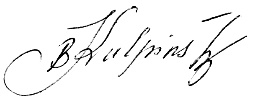 B Kulpins